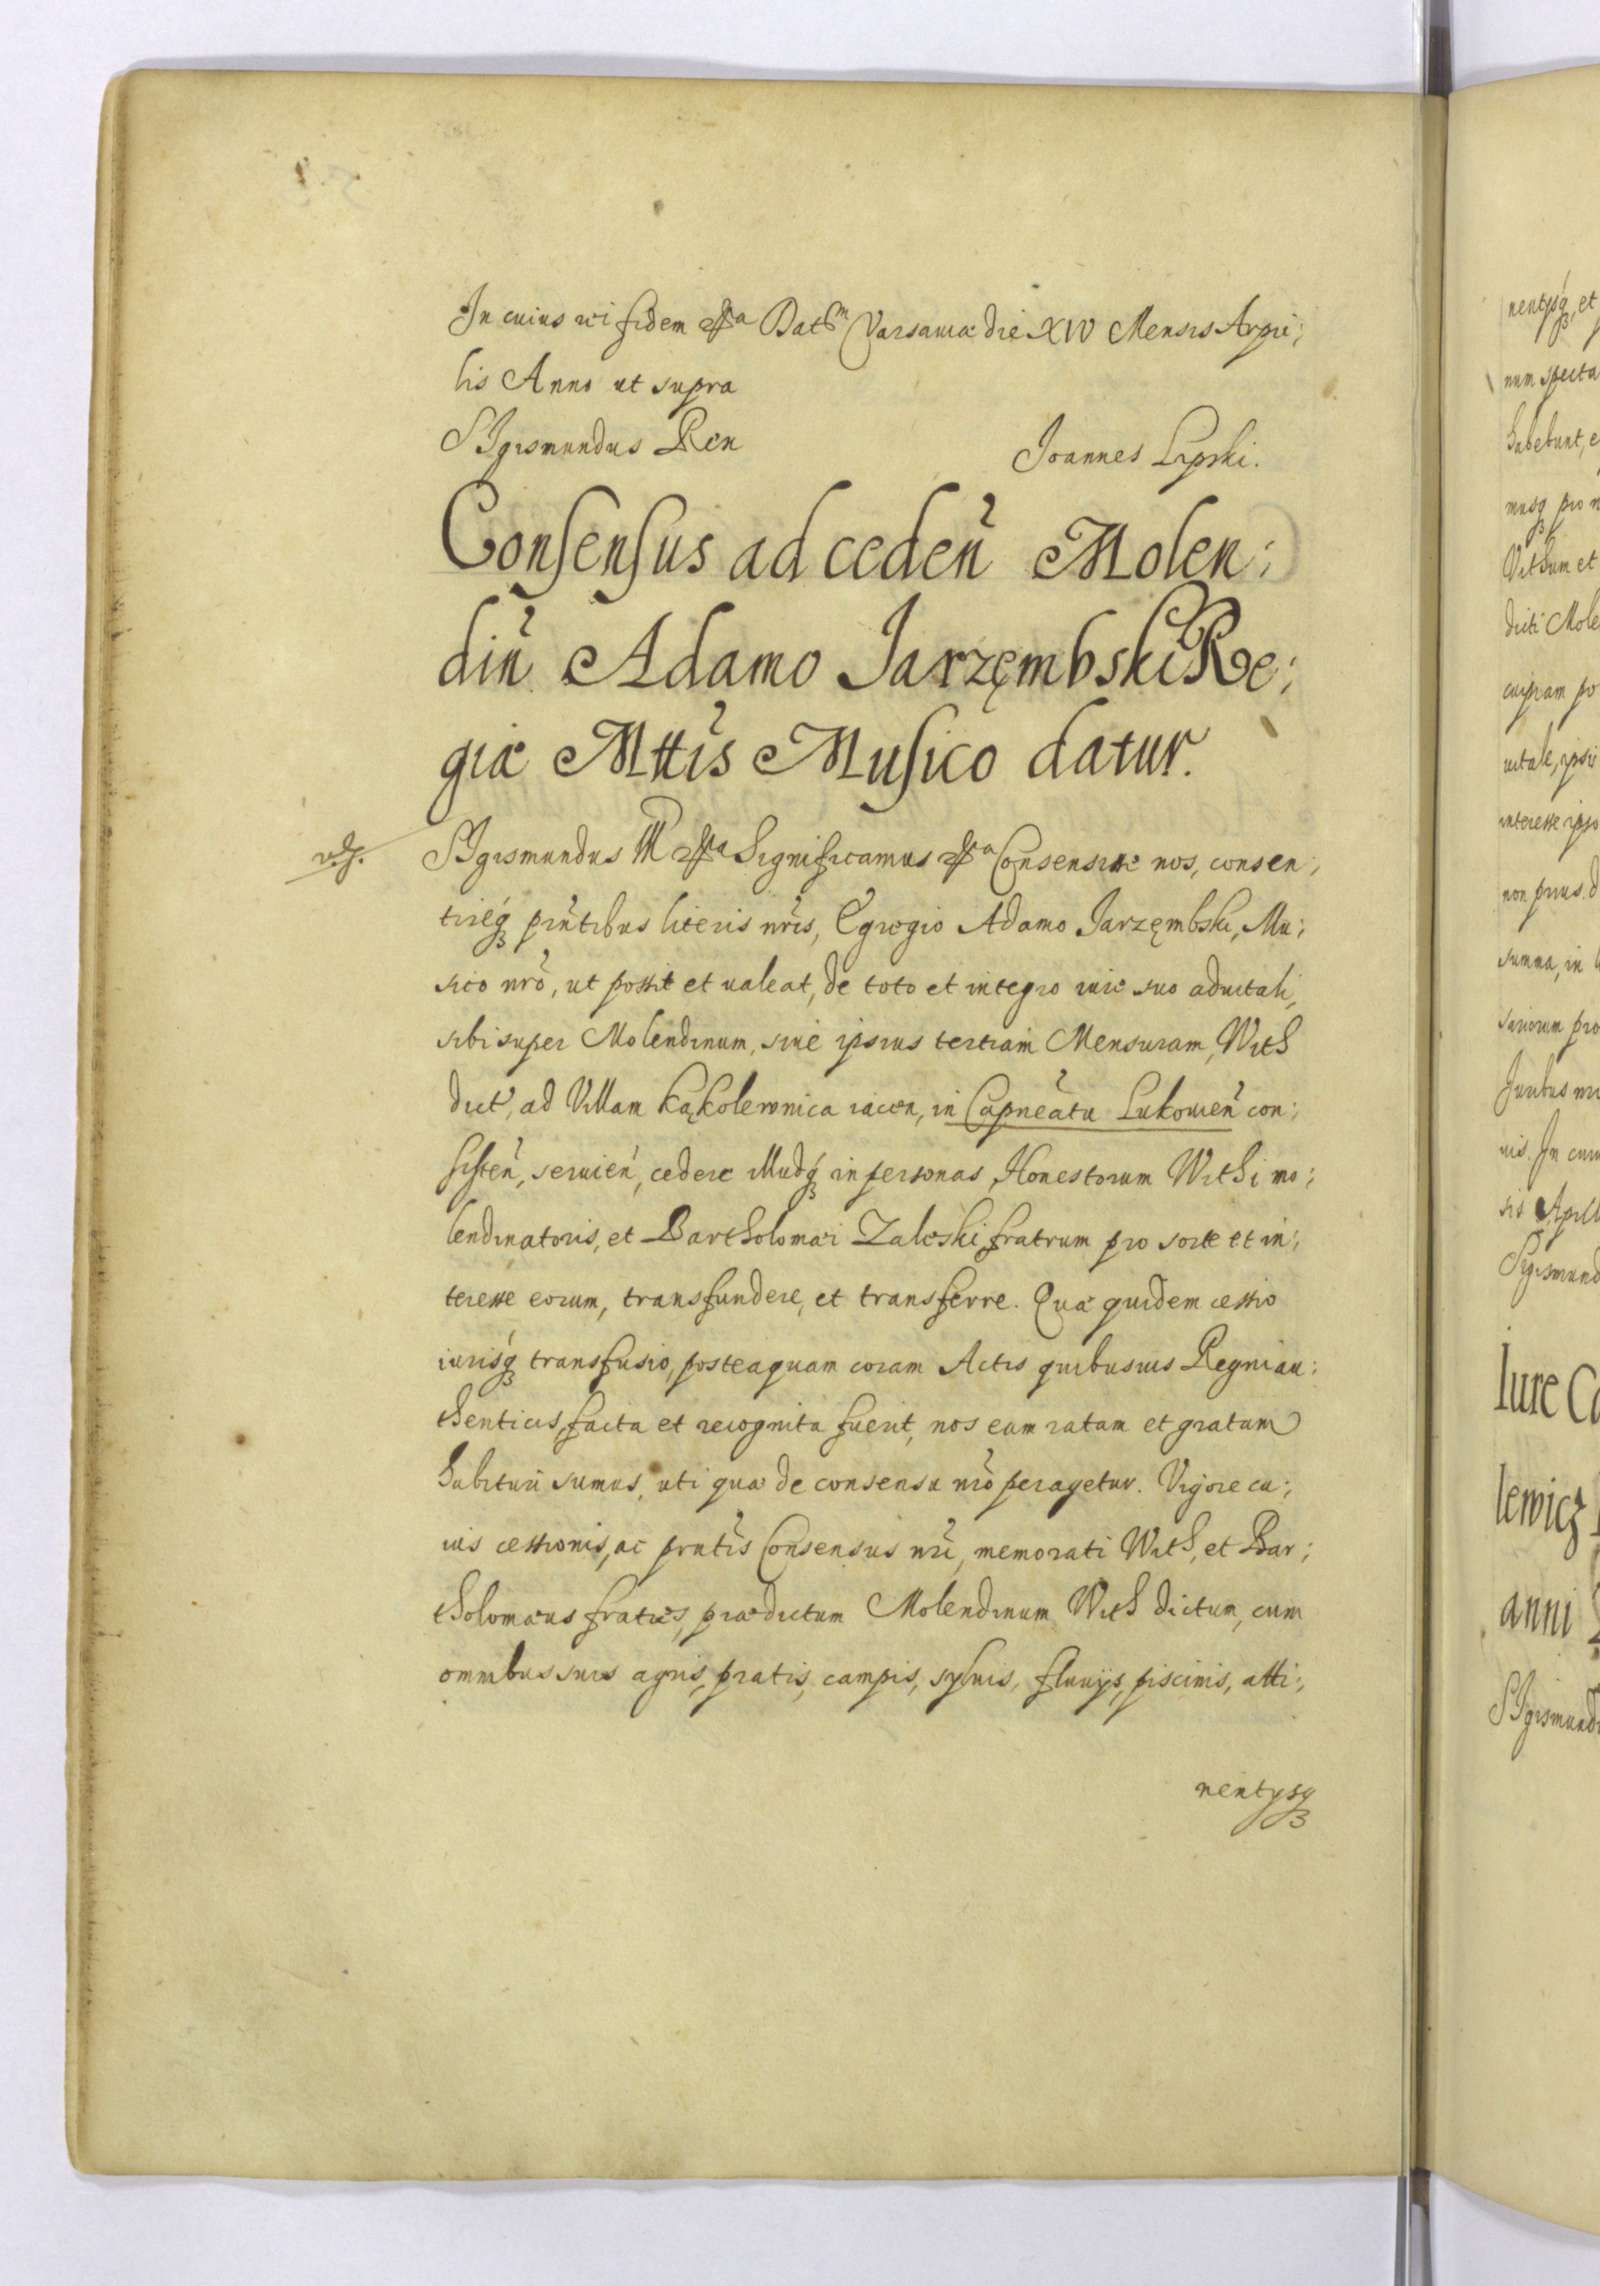 In cuius rei fidem etca Datum Varsaviæ die XIV Mensis Apri:
lis Anno ut supra
Sigismundus Rex
Joannes Lipski.
Consensus ad ceden̄ Molen:
din̄ Adamo Jarzęmbski Re:
giæ Mttis Musico datur.
Sigismundus III etca Significamus etca Consensisse nos, consen:
tireq́ꝫ prn̄tibus literis nr̄is, Egregio Adamo Jarzęmbski, Mu:
sico nr̄o, ut possit et ualeat, de toto et integro iure suo aduitali,
sibi super Molendinum, siue ipsius tertiam Mensuram, With
dict', ad Villam Kąkolewnica iacen, in Capneatu Lukouien̄ con:
sisten̄, seruien̄, cedere illudq́ꝫ in personas Honestorum Withi mo:
lendinatoris, et Bartholomæi Zaleski fratrum pro sorte et in:
teresse eorum, transfundere, et transferre. Quæ quidem cessio
iurisq́ꝫ transfusio, posteaquam coram Actis quibusuis Regni au:
thenticis, facta et recognita fuerit, nos eam ratam et gratam
habituri sumus, uti quæ de consensu nr̄o peragetur. Vigore cu:
ius cessionis, ac prn̄tis Consensus nr̄i, memorati With, et Bar:
tholomæus fratres, prædictum Molendinum With dictum, cum
omnibus suis agris, pratis, campis, syluis, fluuijs, piscinis, atti:
nentysqꝫ
nentysq́ꝫ, et
num specta
habebunt, e
musqꝫ pro n
Vithum et
dicti Mole
cuipiam po
uitale, ipsis
interesse ipso
non prius d
summa, in
sariorum pro
Juribus nr
uis. In cuiu
sis Aprili
Sigismund
Iure Ca
lewicz
anni
Sigismundu